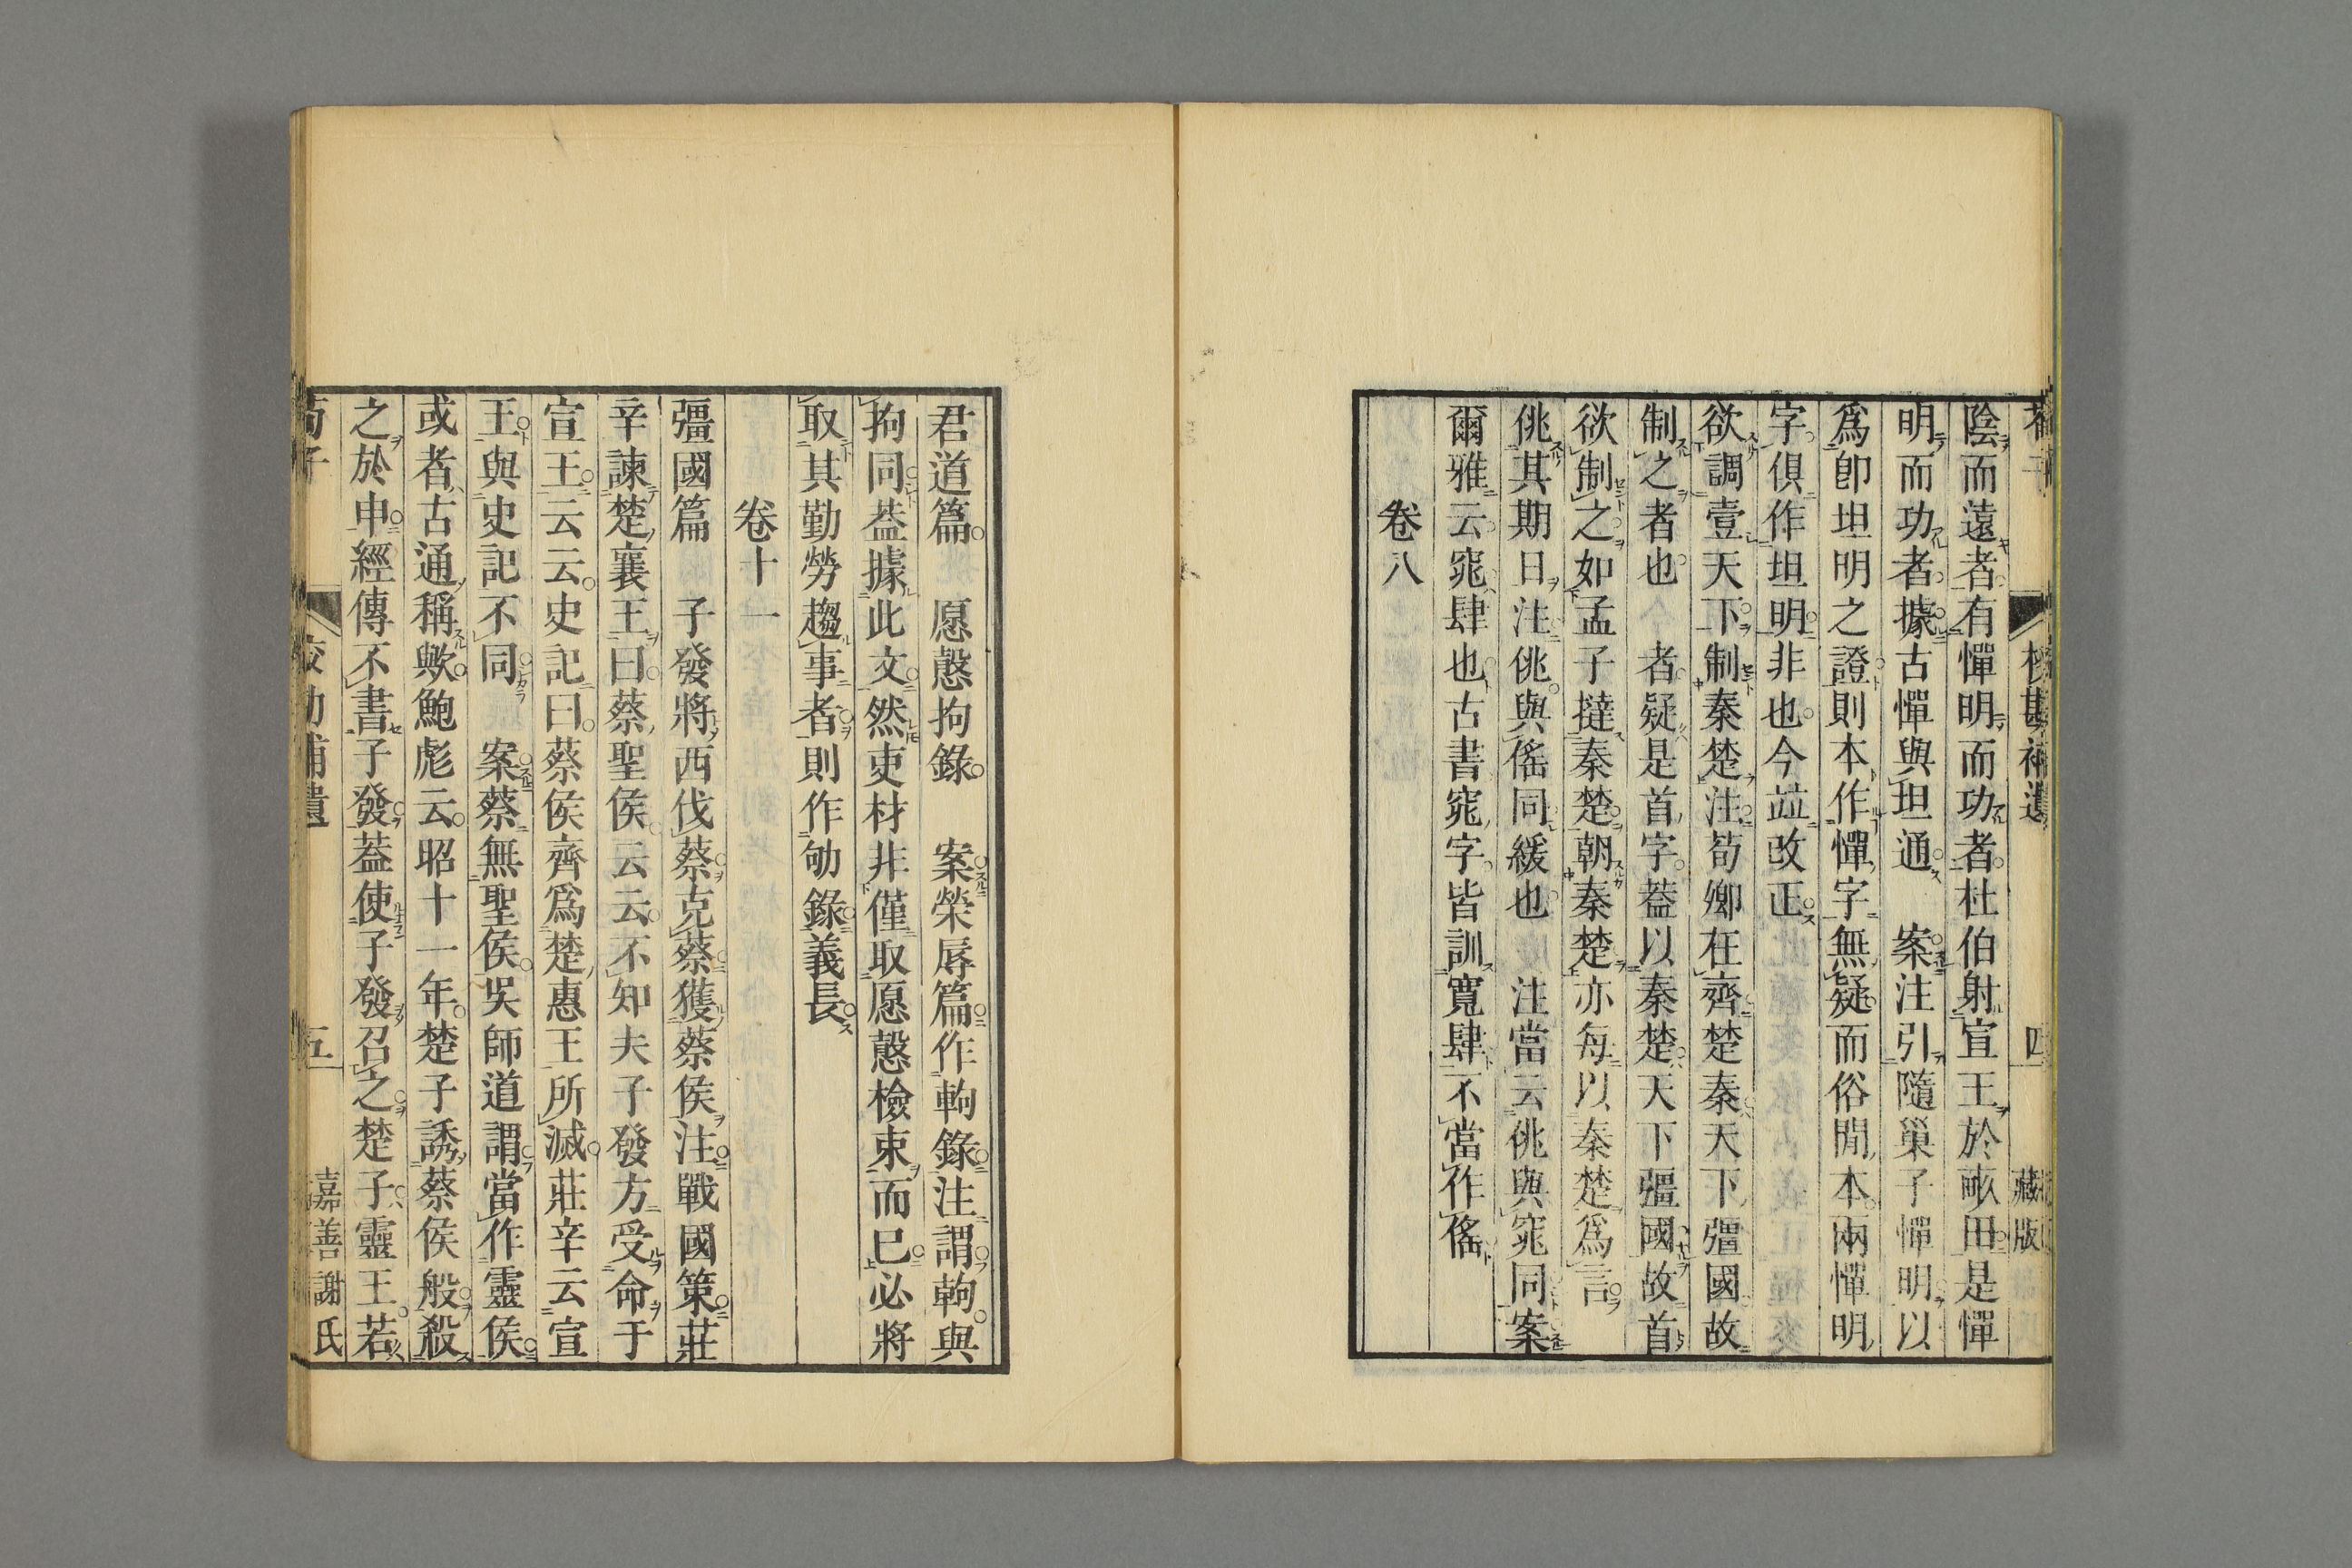 荀子 校勘補遺 四 藏版
陰而遠者有憚明而功者杜伯射宣王於畝田是憚
明而功者據古憚與坦通 案注引隨巢子憚明以
爲卽坦明之證則本作憚字無疑而俗閒本兩憚明
字俱作坦明非也今竝改正
欲調壹天下制秦楚注荀卿在齊楚秦天下彊國故
制之者也 者疑是首字葢以秦楚天下彊國故首
欲制之如孟子撻秦楚朝秦楚亦每以秦楚爲言
佻其期日注佻與傜同緩也 注當云佻與窕同案
爾雅云窕肆也古書窕字皆訓寬肆不當作傜
卷八
君道篇 愿愨拘錄 案榮辱篇作軥錄注謂軥與
拘同葢據此文然吏材非僅取愿愨檢束而已必將
取其勤勞趨事者則作劬錄義長
卷十一
彊國篇 子發將西伐蔡克蔡獲蔡侯注戰國策莊
辛諫楚襄王曰蔡聖侯云云不知夫子發方受命于
宣王云云史記曰蔡侯齊爲楚惠王所滅莊辛云宣
王與史記不同 案蔡無聖侯吳師道謂當作靈侯
或者古通稱歟鮑彪云昭十一年楚子誘蔡侯般殺
之於申經傳不書子發葢使子發召之楚子靈王若
荀子 校勘補遺 五 嘉善謝氏